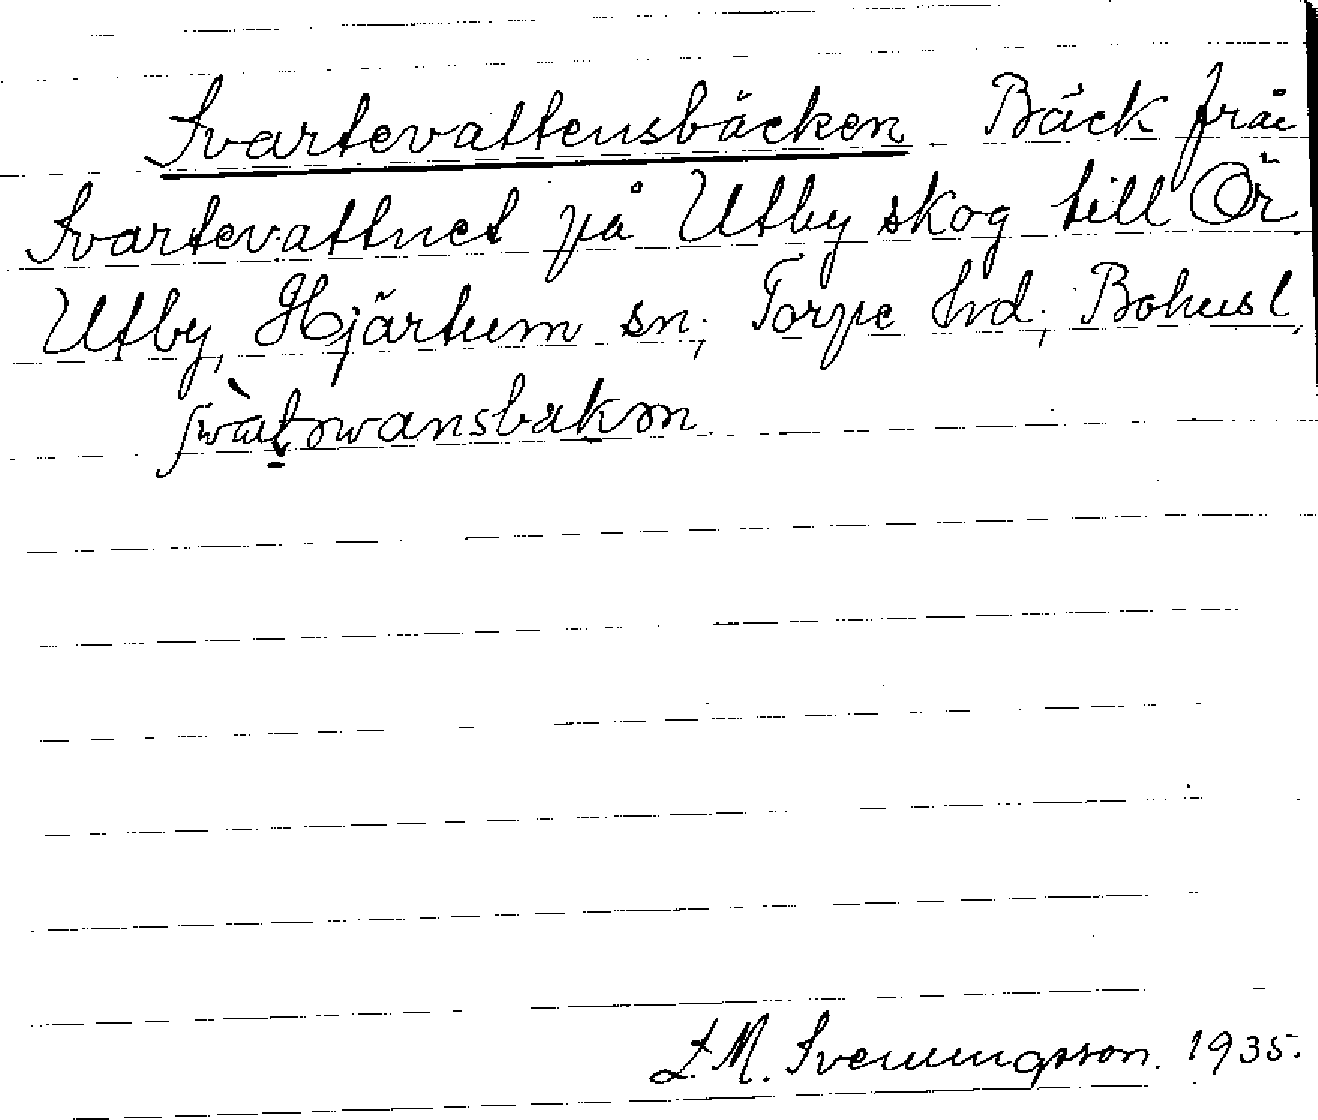 Svartevattensbäcken. Bäck från
Svartevattnet på Utby skog till Ör.
Utby, Hjärtum sn; Torpe hrd; Bohusl.
L.M. Svenningsson. 1935.